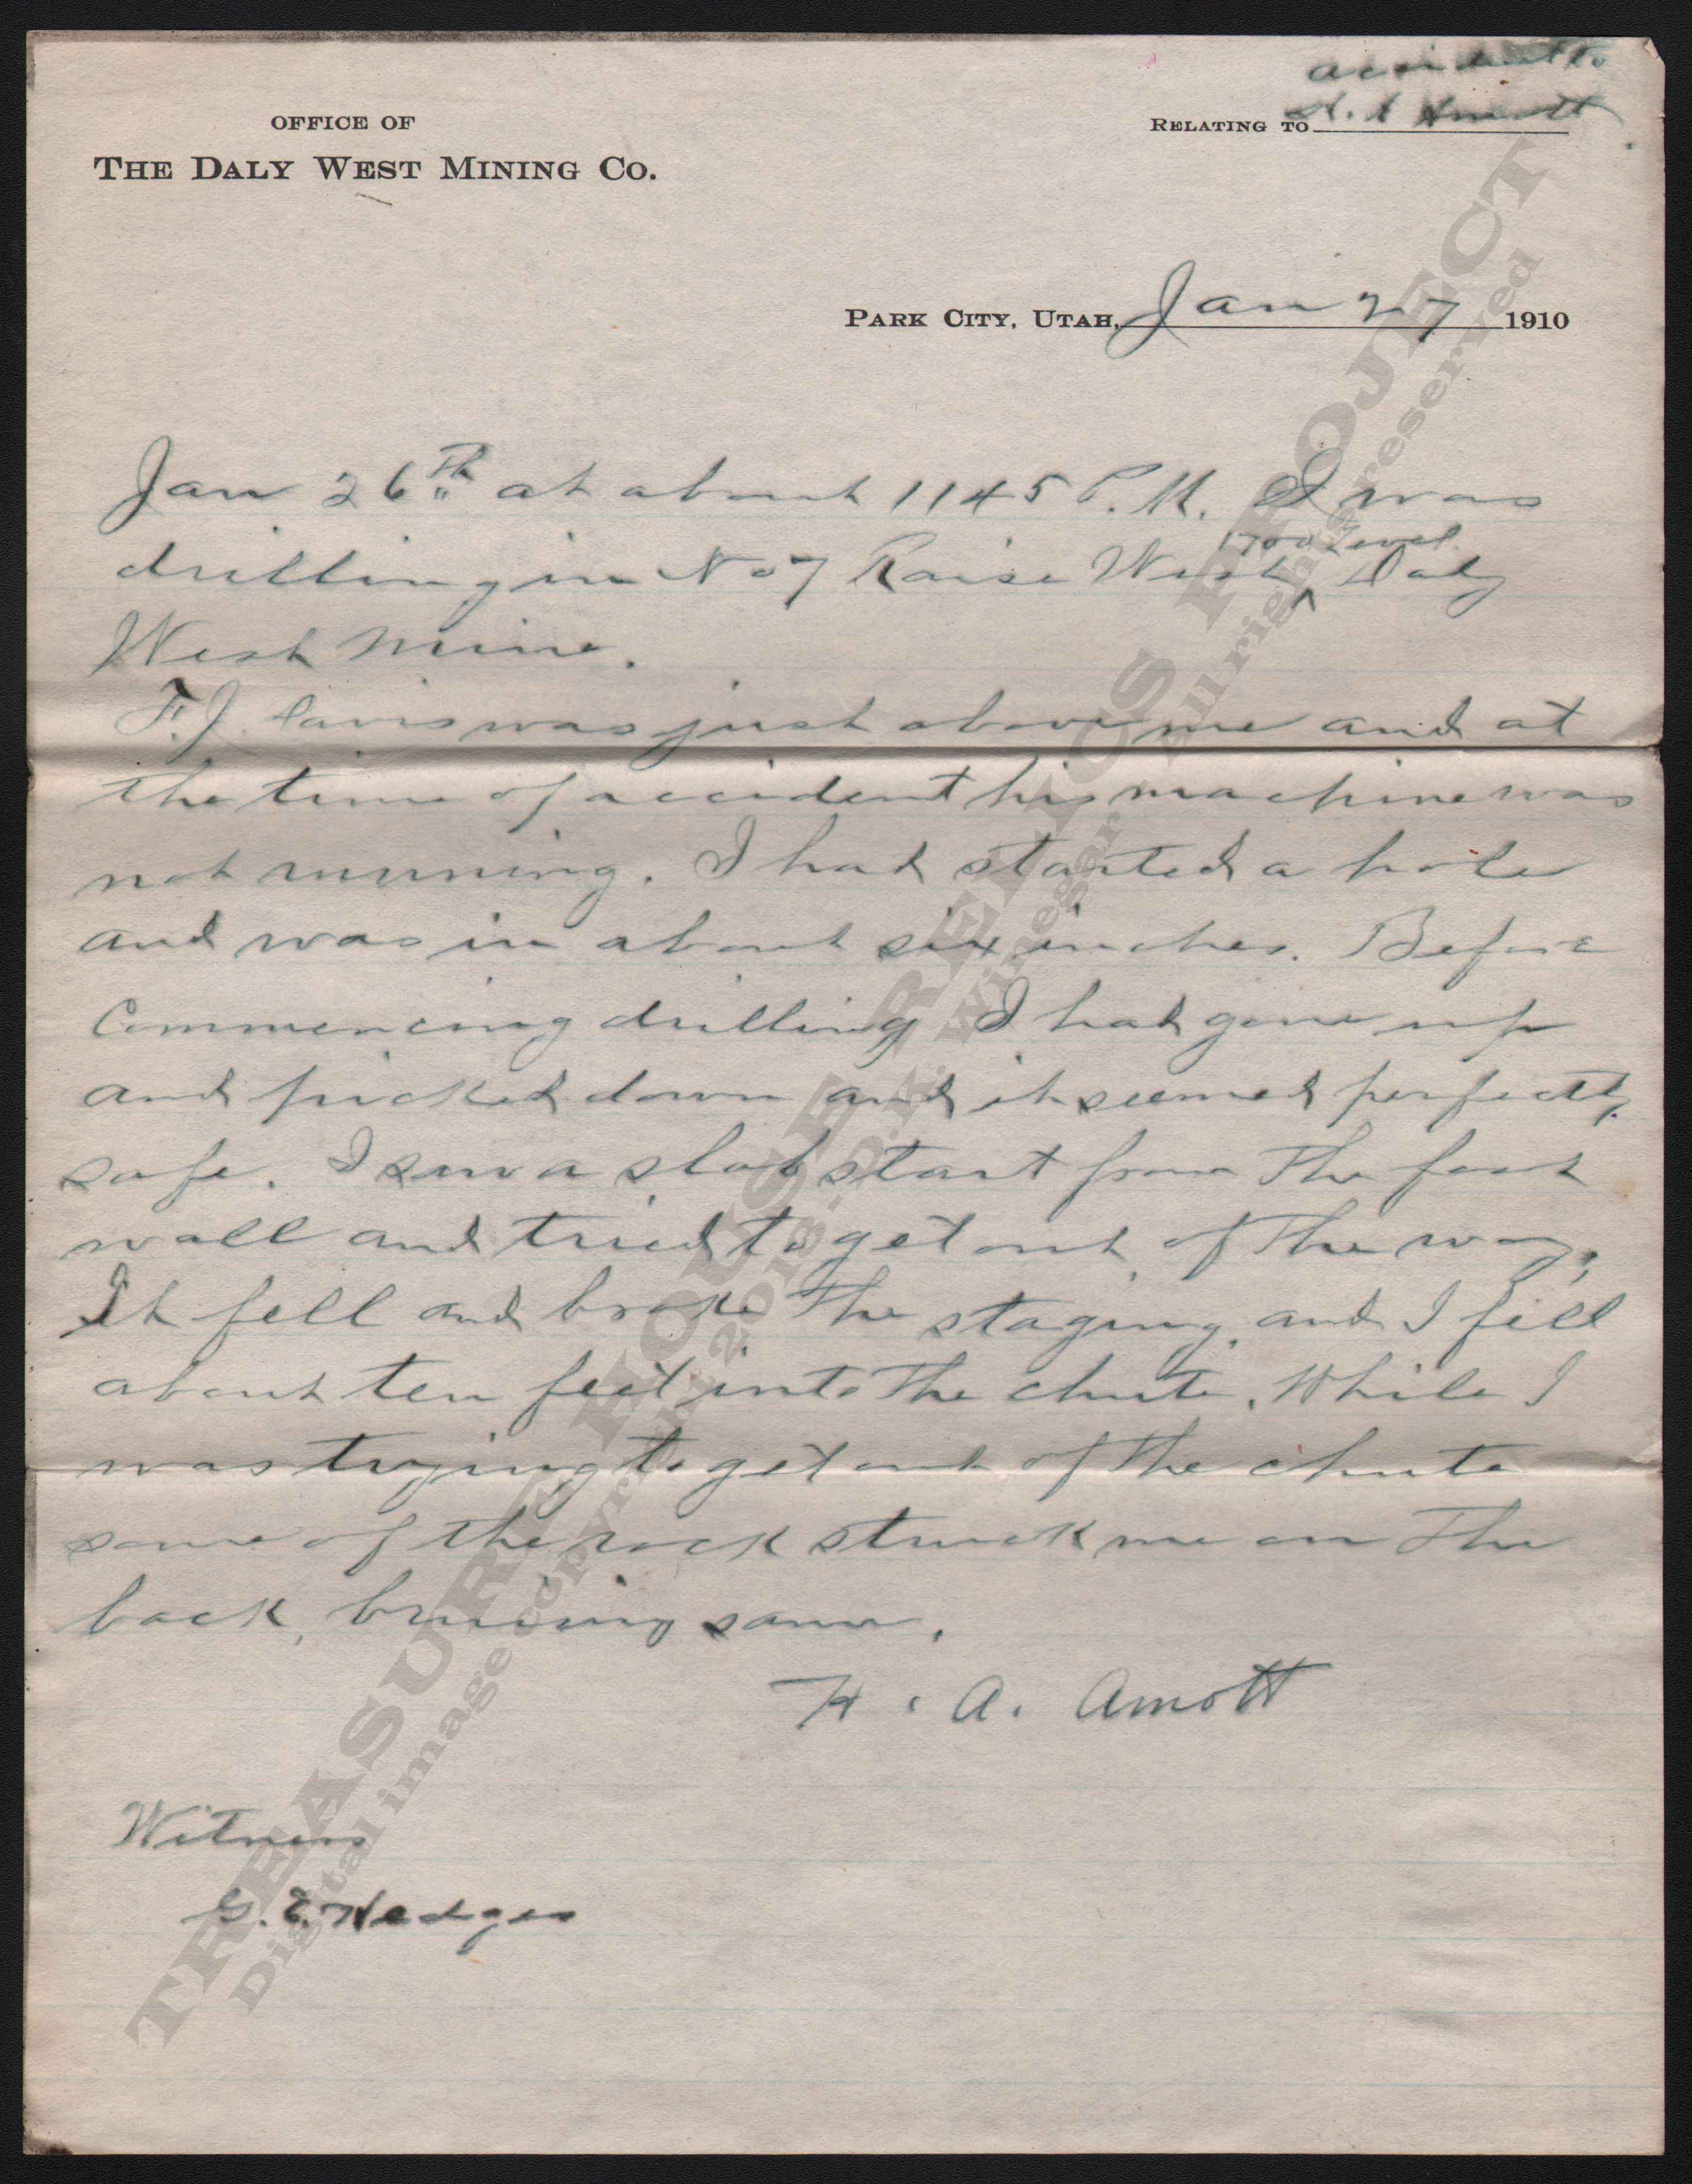 accident to
OFFICE OF
RELATING TO H. A Amott
THE DALY WEST MINING CO.
PARK CITY, UTAH, Jan 27 1910
Jan 26th at about 1145 P.M. I was
drilling in No 7 Raise West 1700 Level Daly
West Mine.
F. J. Davis was just above me and at
the time of accident his machine was
not running. I had started a hole
and was in about six inches. Before
commencing drilling I had gone up
and picked down and it seemed perfectly
safe. I saw a slab start from the foot
wall and tried to get out of the way.
It fell and broke the staging and I fell
about ten feet into the chute. While I
was trying to get out of the chute
some of the rock struck me on the
back, bruising same.
H. A. Amott
Witness
G. E. Hedges
TREASURE HOUSE RELICS PROJECT
Digital image copyright 2013 - D.K. Winegar - All rights reserved